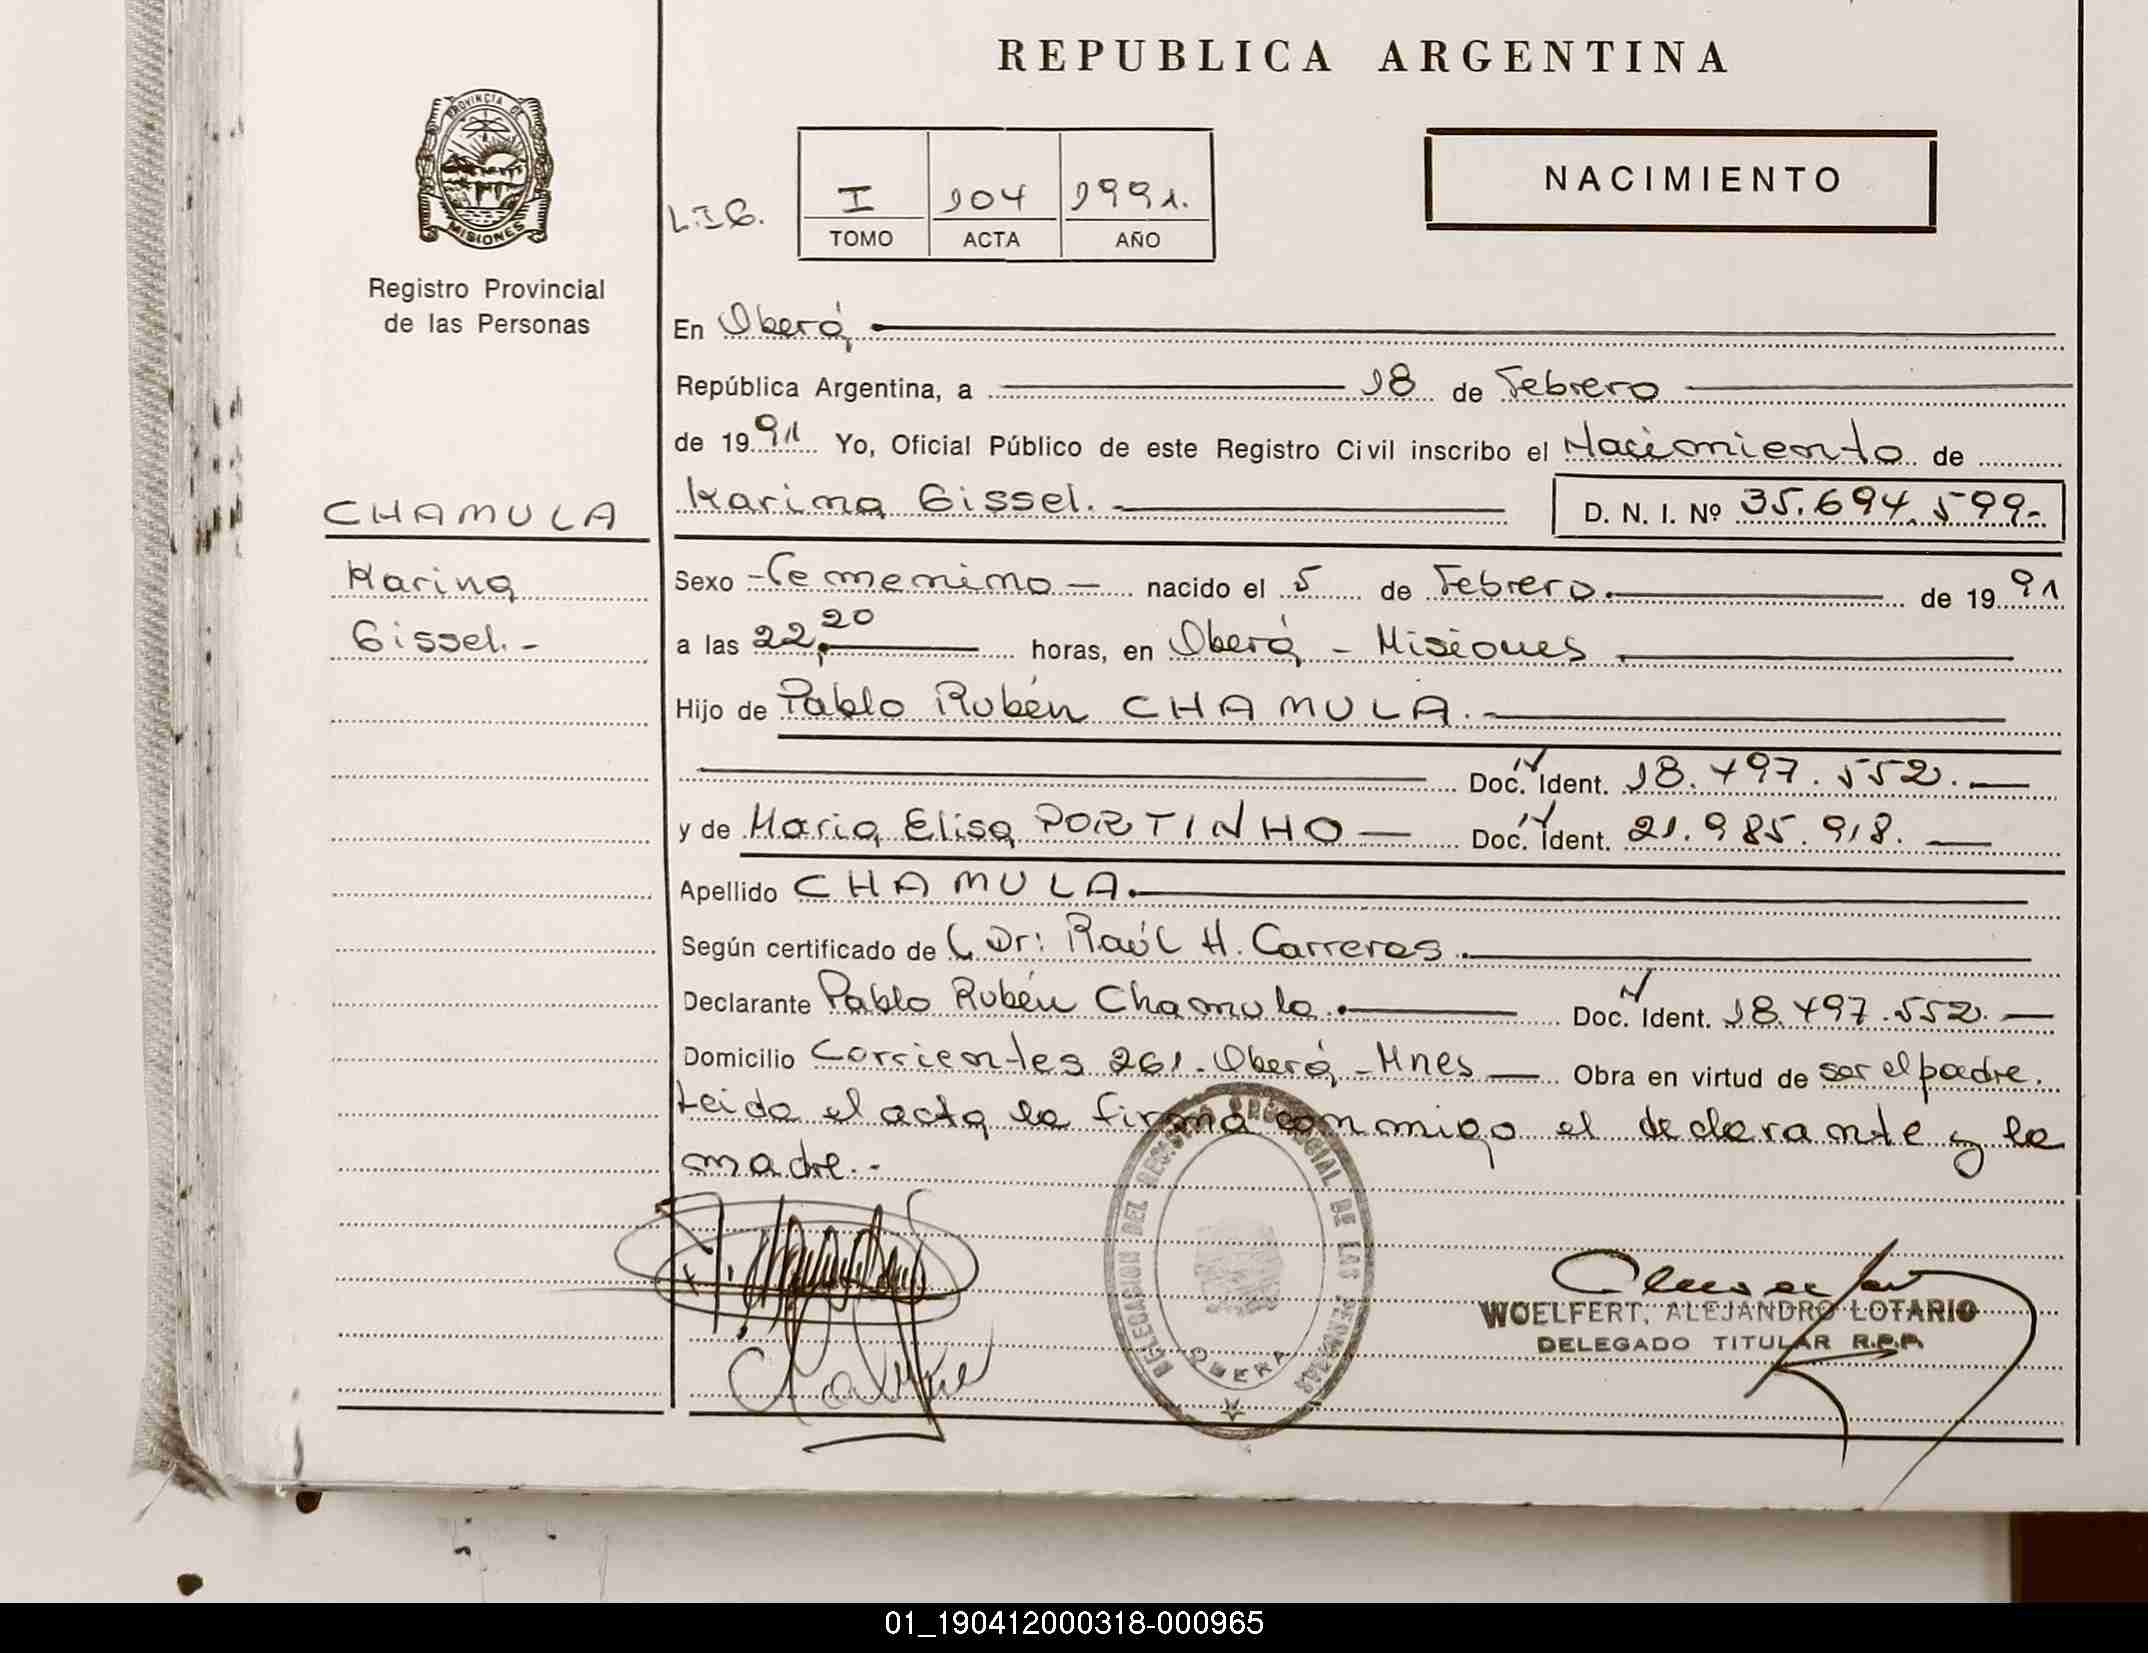 REPUBLICA ARGENTINA
PROVINCIA DE
MISIONES
Registro Provincial
de las Personas
L.I.G.
I 104 1991.
TOMO ACTA AÑO
NACIMIENTO
En Oberá
República Argentina, a 18 de Febrero
de 1991 Yo, Oficial Público de este Registro Civil inscribo el Nacimiento de
CHAMULA
Karina Gissel. D. N. I. Nº 35.694.599-
Karina
Gissel.-
Sexo -Femenino- nacido el 5 de Febrero de 1991
a las 22,20 horas, en Oberá - Misiones
Hijo de Pablo Rubén CHAMULA.-
Doc. Ident. 18.497.552.-
y de Maria Elisa PORTINHO- Doc. Ident. 21.985.918.-
Apellido CHAMULA.
Según certificado de Dr: Raúl H. Carreras.
Declarante Pablo Rubén Chamula. Doc. Ident. 18.497.552.-
Domicilio Corrientes 261-Oberá-Mnes- Obra en virtud de ser el padre.
Leida el acta la firma conmigo el declarante y la
madre.-
DELEGACION DEL REGISTRO PROVINCIAL DE LAS PERSONAS
OBERA
WOELFERT, ALEJANDRO LOTARIO
DELEGADO TITULAR R.P.P.
01_190412000318-000965